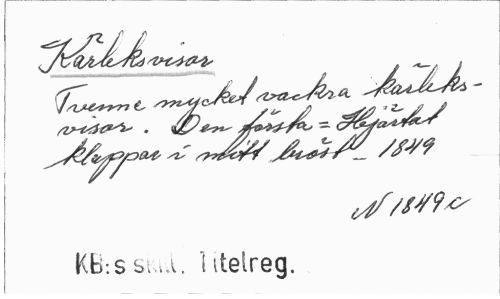 Kärleksvisor
Tvenne mycket vackra kärleks-
visor. Den första = Hejärtat
klappar i mitt bröst _ 1849
N 1849 c
KB:s skill. Titelreg.